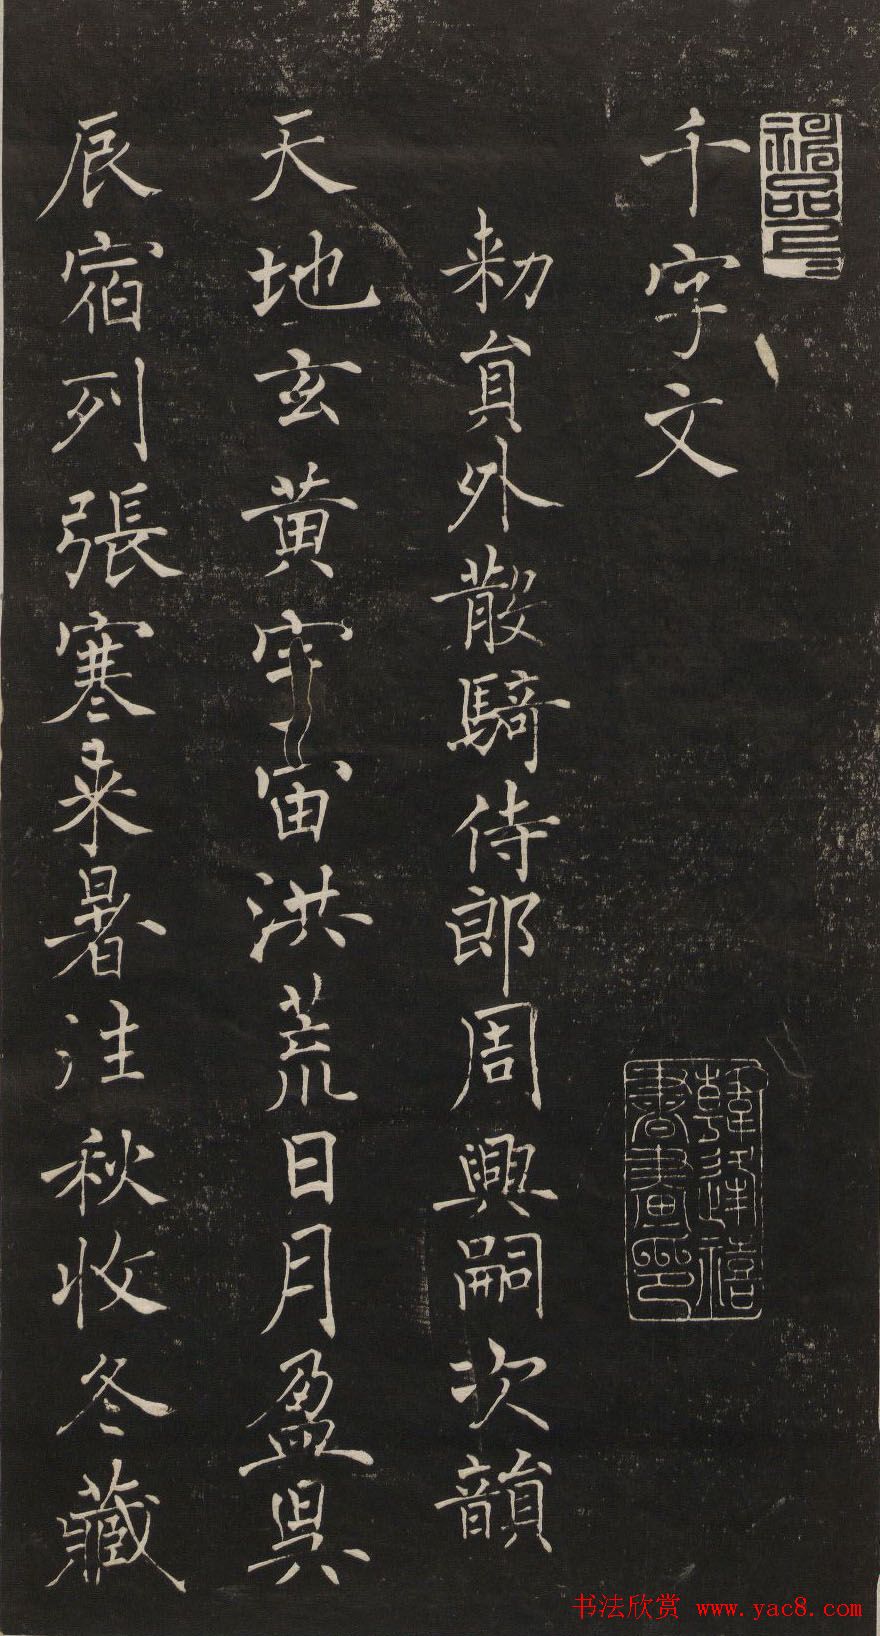 千字文
韓逢禧
書畫印
勑員外散騎侍郎周興嗣次韻
天地玄黄宇宙洪荒日月盈昃
辰宿列張寒来暑往秋收冬藏
书法欣赏 www.yac8.com